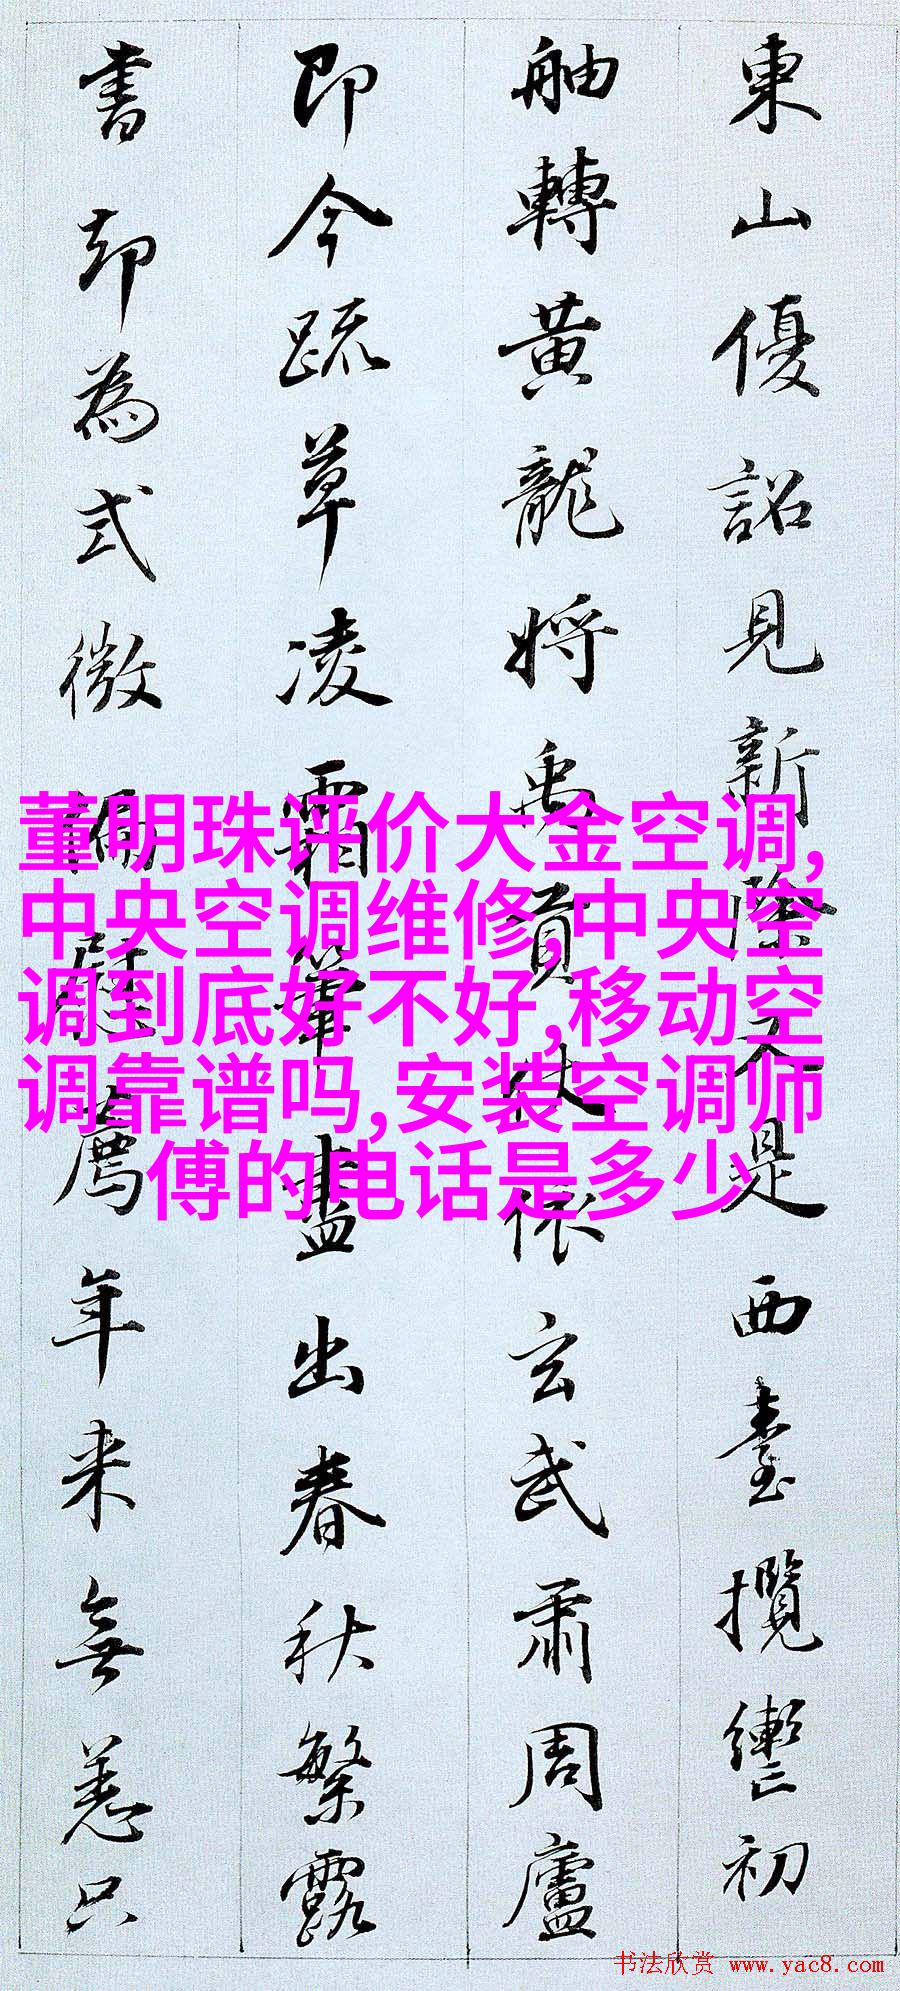 東山優詔見新除又是西臺攬轡初
舳轉黃龍將禹貢伏依玄武肅周廬
即今疏草凌霜筆盡出春秋繁露
書却為式微偏慰薦年来無恙只
董明珠评价大金空调,
中央空调维修,中央空
调到底好不好,移动空
调靠谱吗,安装空调师
傅的电话是多少
书法欣赏 www.yac8.com